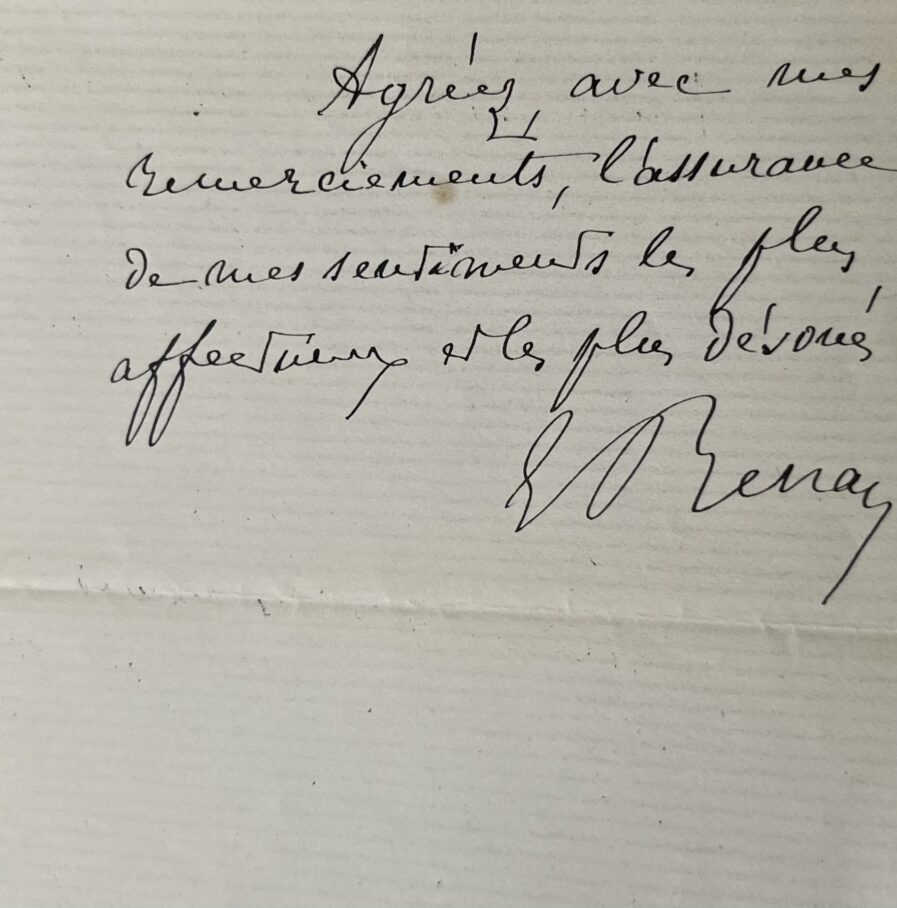 Agréez, avec mes
remerciements, l'assurance
de mes sentiments les plus
affectueux et les plus dévoués
E Renan